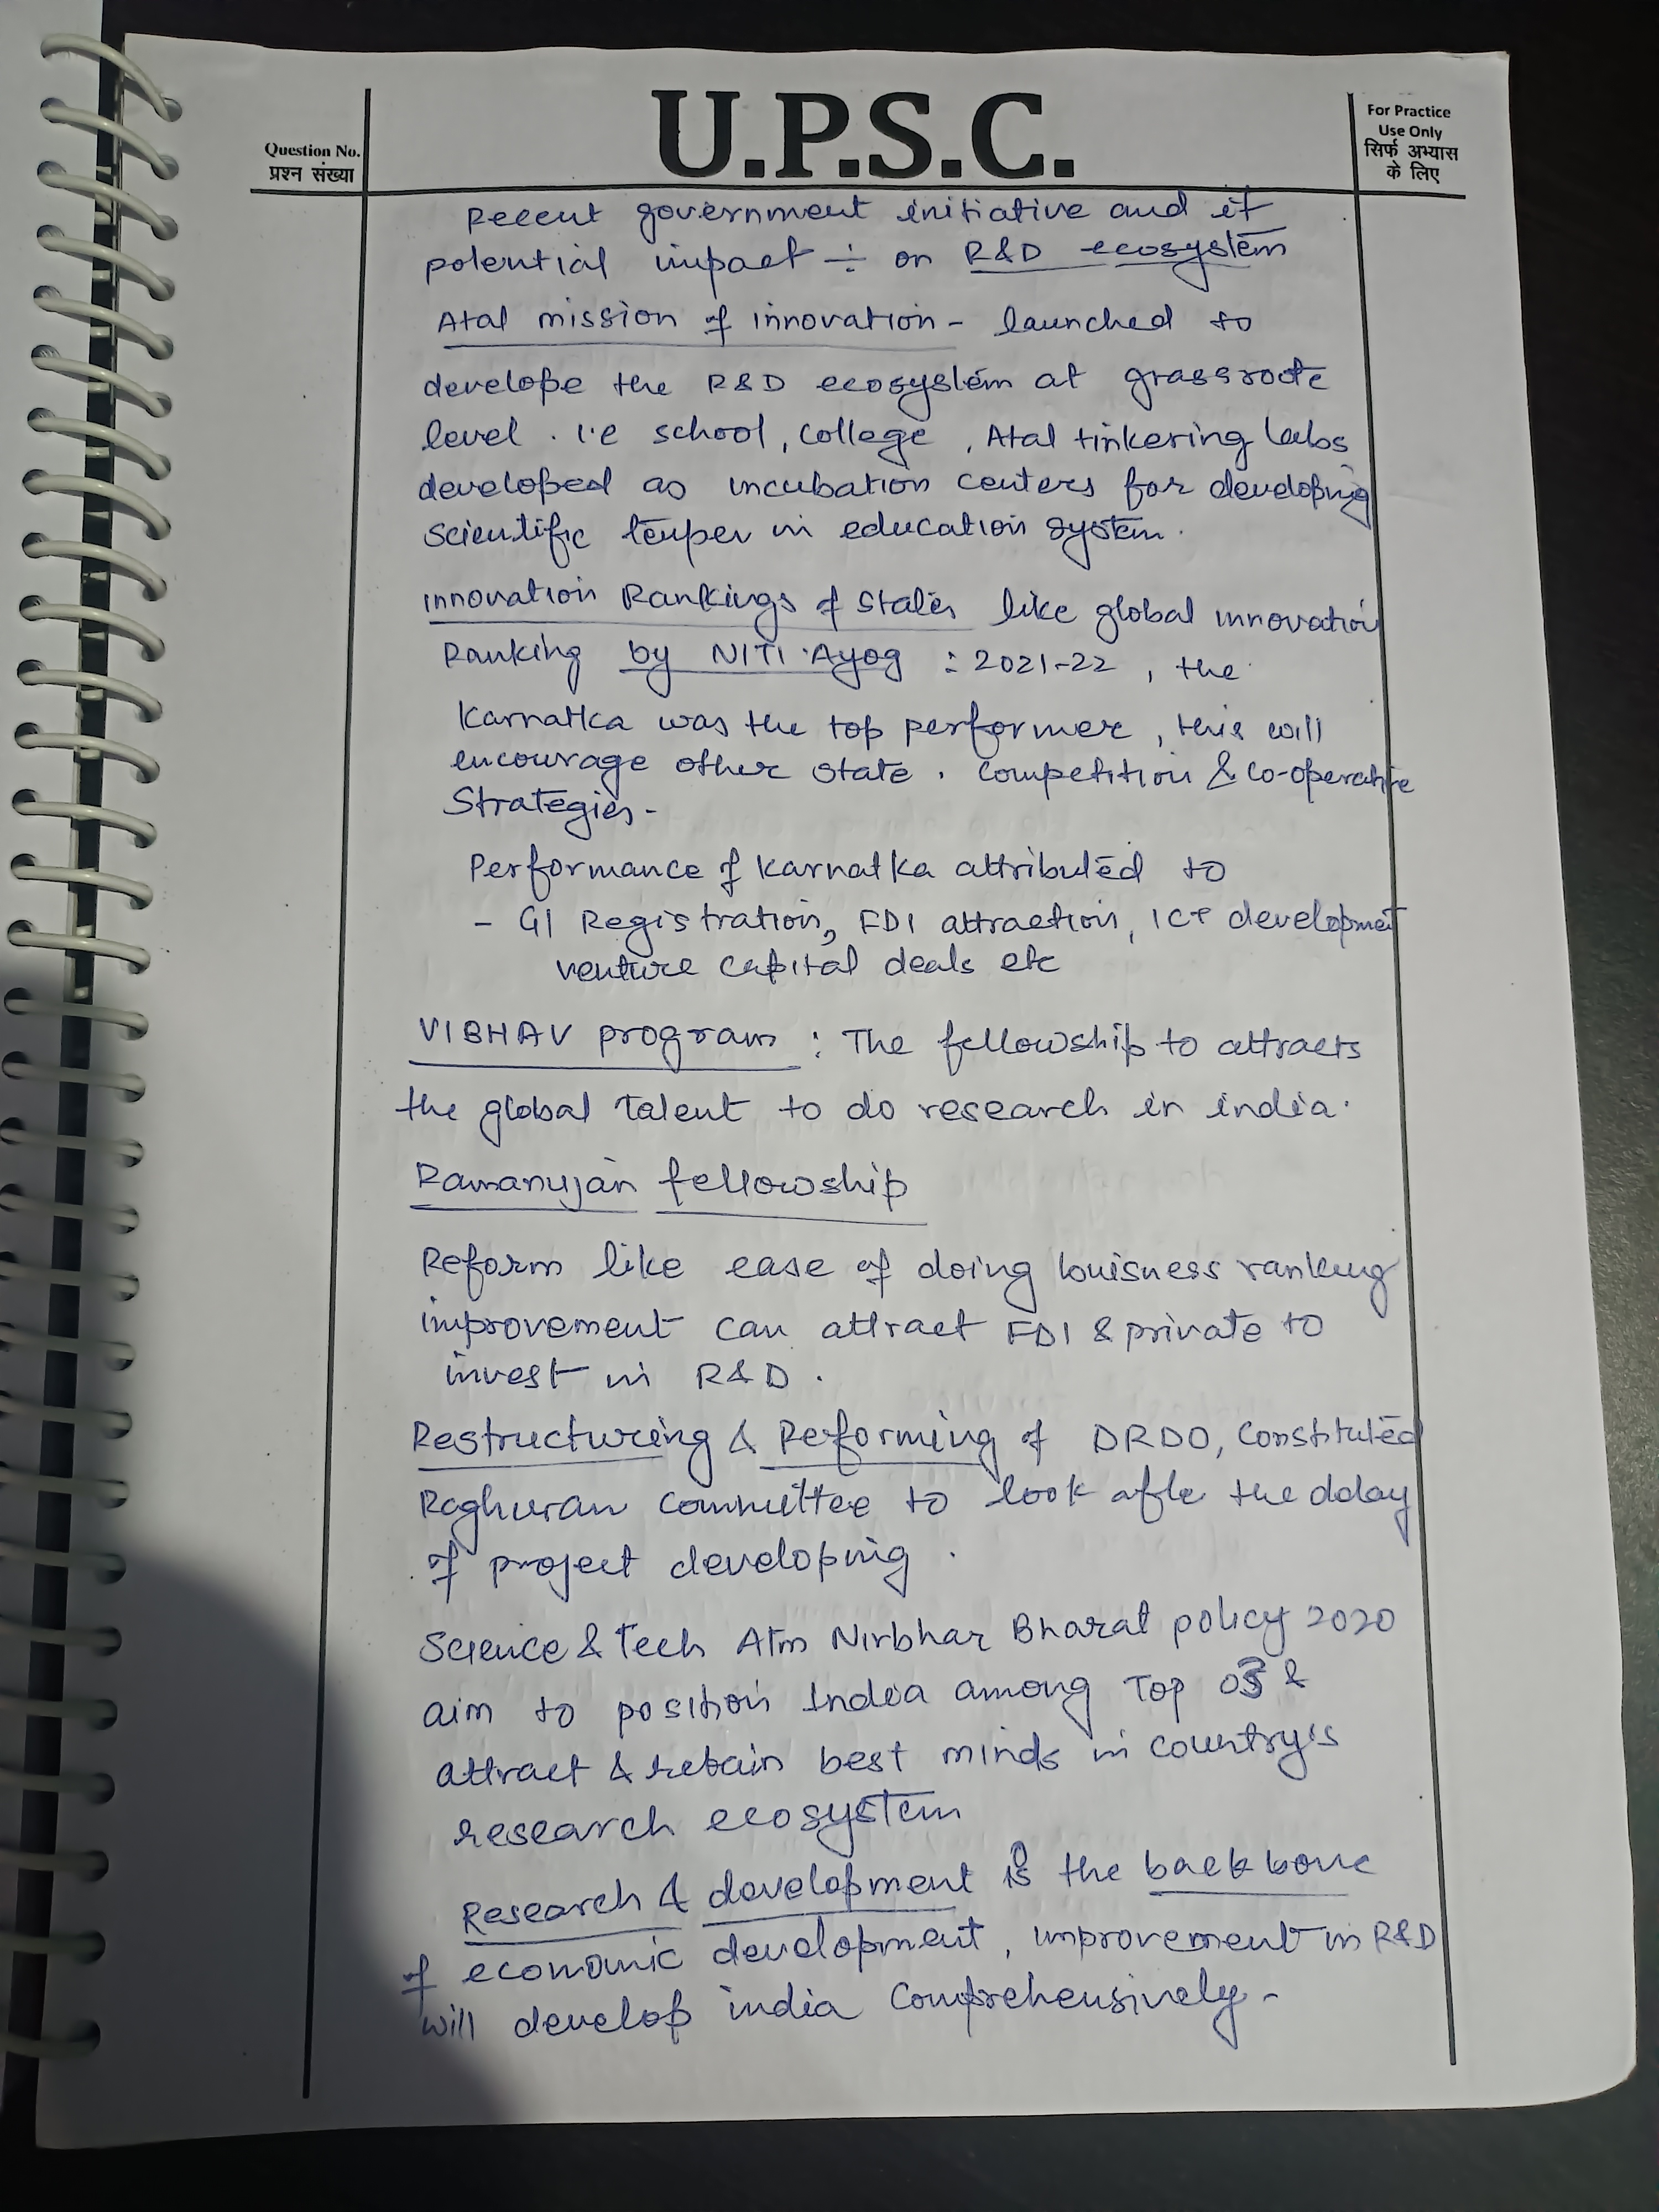 Question No.
प्रश्न संख्या
U.P.S.C.
For Practice
Use Only
सिर्फ अभ्यास
के लिए
Recent government initiative and it
potential impact ÷ on R&D ecosystem
Atal mission of innovation - launched to
develope the R&D ecosystem at grassroote
level. i.e school, college, Atal tinkering labs
developed as incubation centers for developing
scientific temper in education system.
innovation Rankings of States like global innovation
Ranking by NITI Ayog : 2021-22, the
Karnatka was the top performer, this will
encourage other state. Competition & Co-operative
Strategies-
Performance of Karnatka attributed to
- GI Registration, FDI attraction, ICT development
venture capital deals etc
VIBHAV program : The fellowship to attracts
the global talent to do research in india.
Ramanujan fellowship
Reform like ease of doing buisness ranking
improvement can attract FDI & private to
invest in R&D.
Restructuring & Reforming of DRDO, Constituted
Raghuran committee to look afte the delay
of project developing.
Science & Tech Atm Nirbhar Bharat policy 2020
aim to position India among Top 03 &
attract & retain best minds in country's
research ecosystem
Research & development is the backbone
of economic development, improvement in R&D
will develop india comprehensively-